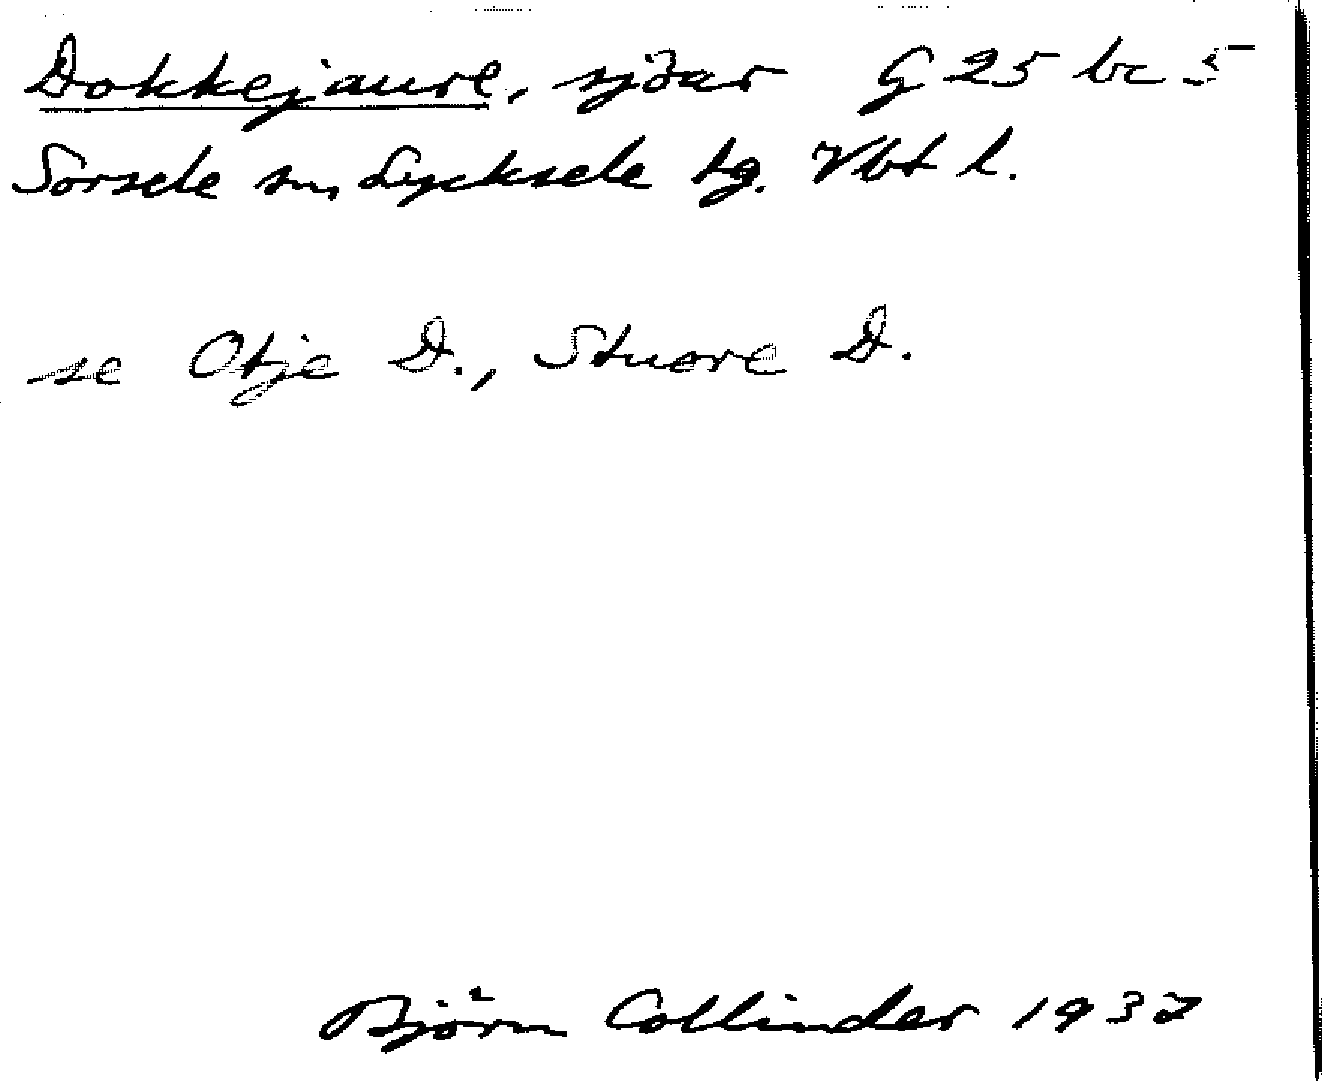 Dokkejaure, sjöar G 25 bc 5
Sorsele sn, Lycksele tg. Vbt l.
se Otje D., Stuore D.
Björn Collinder